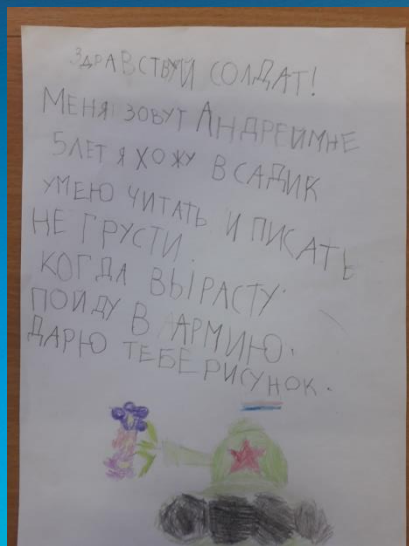 ЗДРАВСТВУЙ СОЛДАТ!
МЕНЯ ЗОВУТ АНДРЕЙ МНЕ
5 ЛЕТ Я ХОЖУ В САДИК
УМЕЮ ЧИТАТЬ И ПИСАТЬ
НЕ ГРУСТИ.
КОГДА ВЫРАСТУ
ПОЙДУ В АРМИЮ.
ДАРЮ ТЕБЕ РИСУНОК.